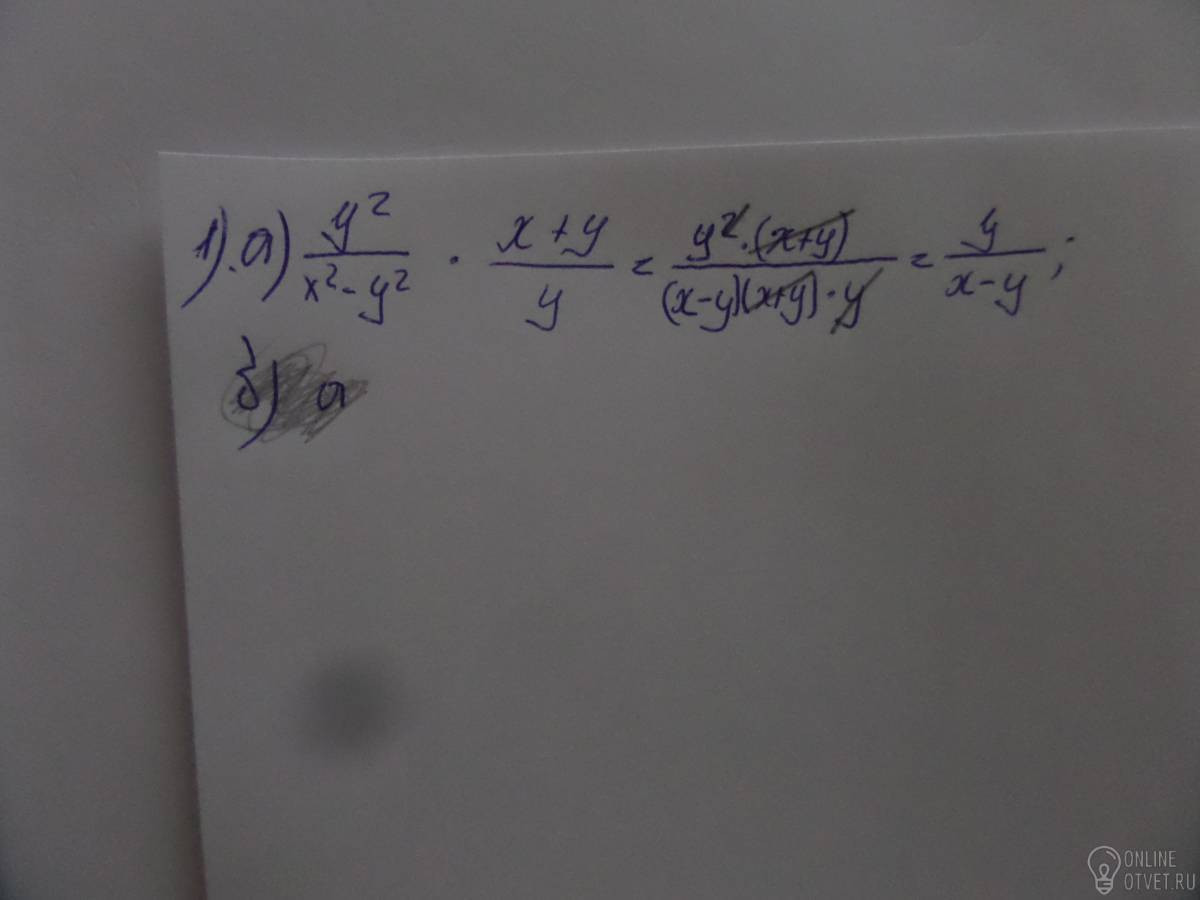 1). а) y²/(x²-y²) · (x+y)/y = (y²·(x+y))/((x-y)(x+y)·y) = y/(x-y);
б) а
ONLINE
OTVET.RU